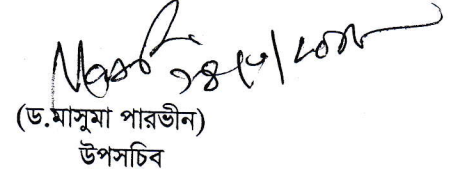 (ড.মাসুমা পারভীন)
উপসচিব